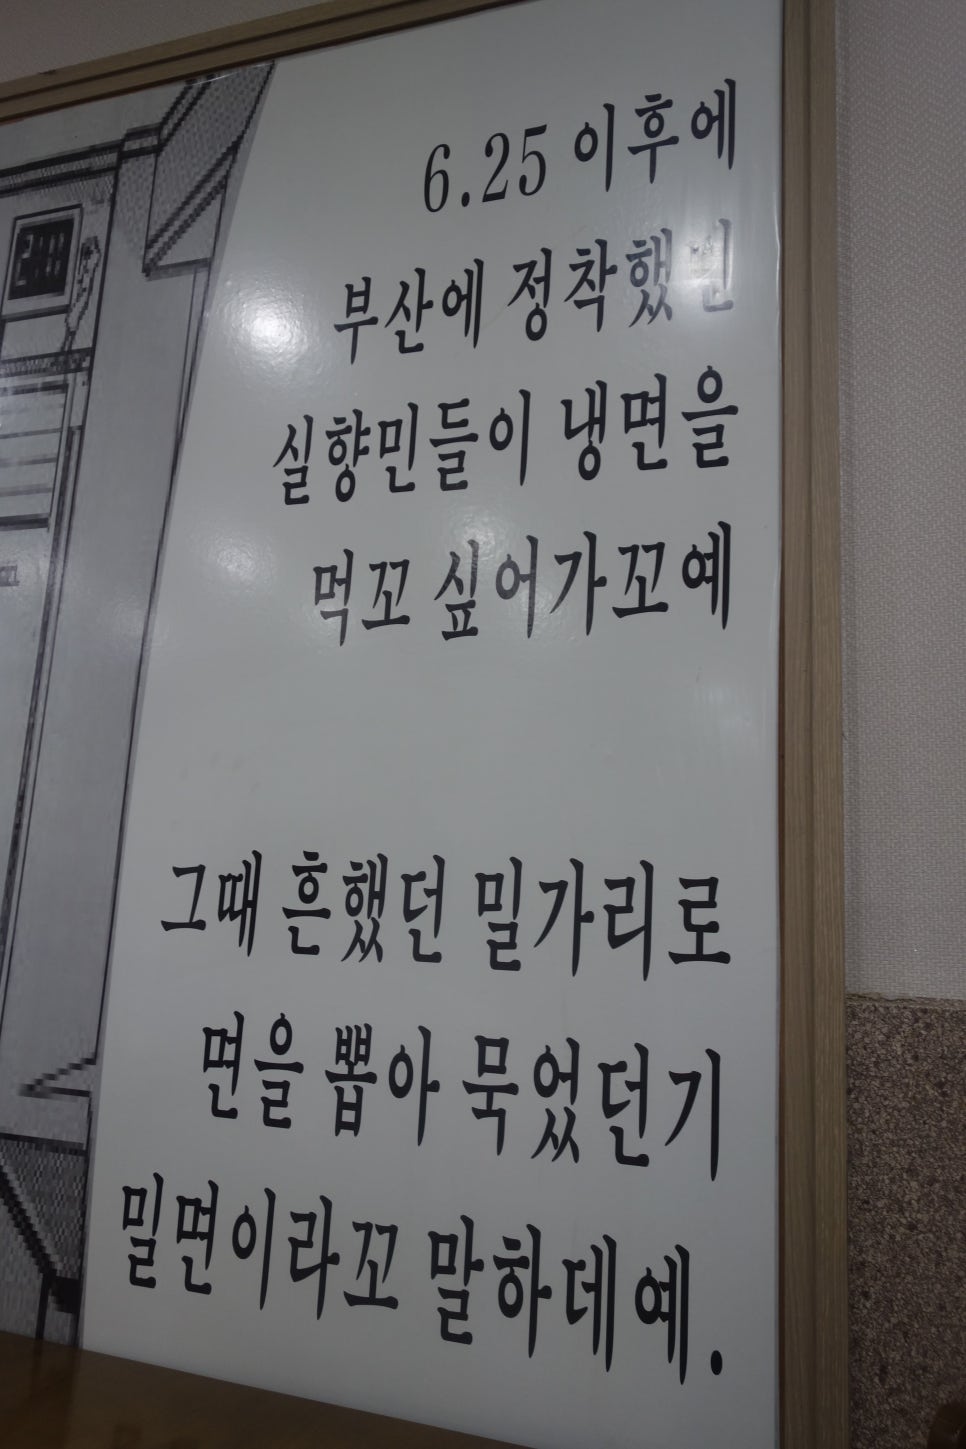 6.25 이후에
부산에 정착했던
실향민들이 냉면을
먹꼬 싶어가꼬예
그때 흔했던 밀가리로
면을 뽑아 묵었던기
밀면이라꼬 말하데예.